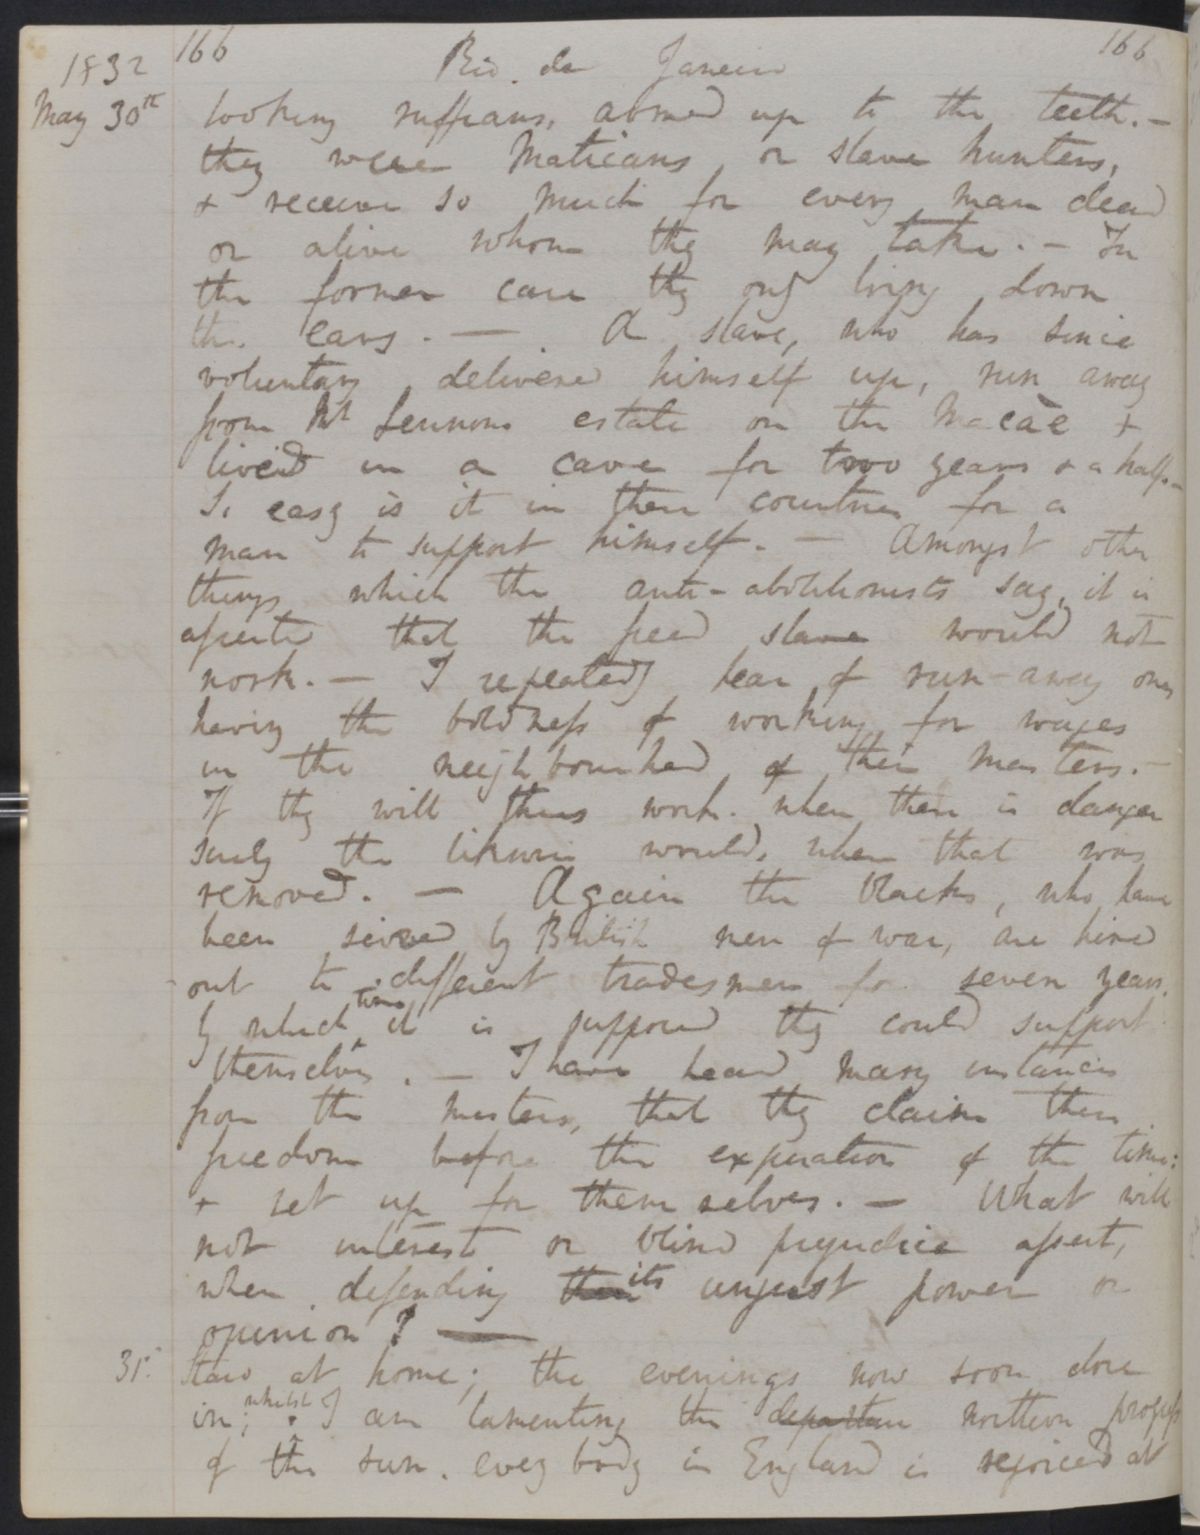 166 Rio de Janeiro 166
1832
May 30th looking ruffians, armed up to the teeth. —
they were Maticans, or slave hunters,
& receive so much for every man dead
or alive whom they may take. — In
the former case they only bring down
the ears. — A slave, who has since
voluntary delivered himself up, run away
from Mr Lennons estate on the Macàe &
lived in a cave for two years & a half. —
So easy is it in these countries for a
man to support himself. — Amongst other
things which the anti-abolitionists say, it is
asserted that the freed slave would not
work. — I repeatedly hear of run-away ones
having the boldness of working for wages
in the neighbourhead of their masters. —
If they will thus work when there is danger
surely they likewise would, when that was
removed. — Again the blacks, who have
been seized by British men of war, are hired
out to different tradesmen for seven years,
by which time it is supposed they could support
themselves. — I have heard many instances
from the masters, that they claim their
freedom before the expiration of the time:
& set up for themselves. — What will
not interest or blind prejudice assert,
when defending their its unjust power or
opinion? —
31st Staid at home; the evenings now soon close
in; whilst I am lamenting the departure northern progress
of the sun, every body in England is rejoiced at